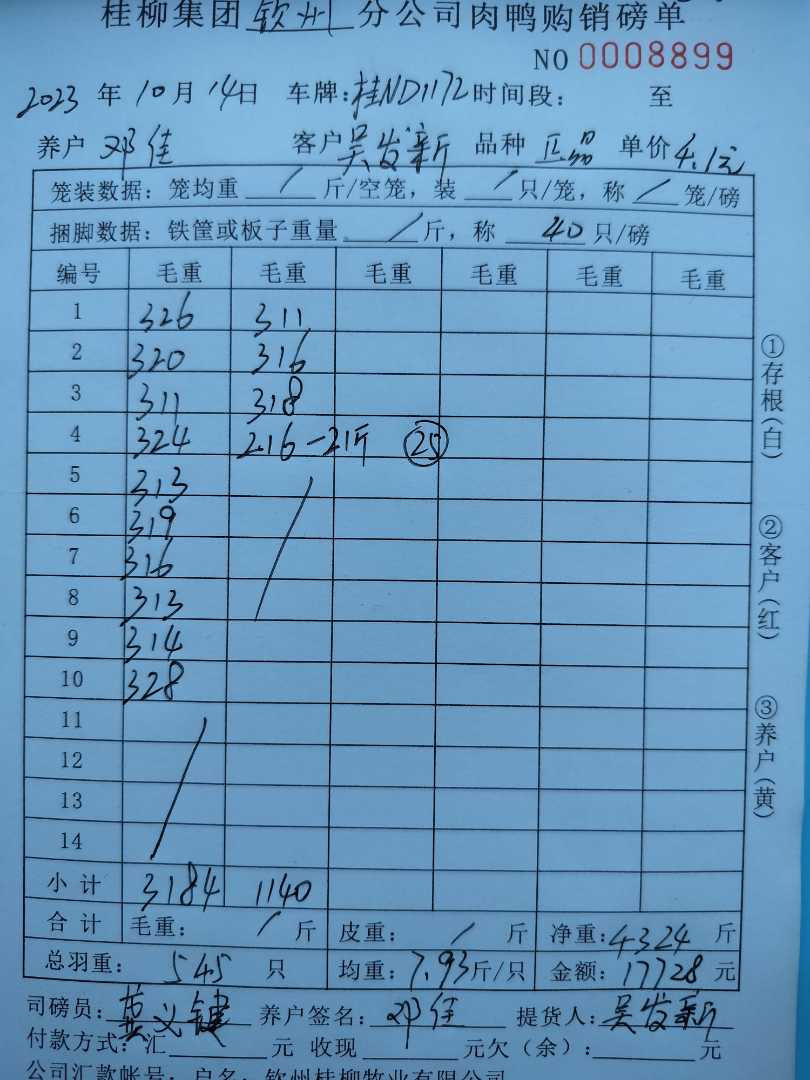 桂柳集团 钦州 分公司肉鸭购销磅单
NO 0008899
2023 年 10 月 14 日 车牌:桂ND1172 时间段: 至
养户 邓佳 客户 吴发新 品种 正品 单价 4.1元
笼装数据: 笼均重 / 斤/空笼, 装 / 只/笼, 称 / 笼/磅
捆脚数据: 铁筐或板子重量 / 斤, 称 40 只/磅
编号 毛重 毛重 毛重 毛重 毛重 毛重
1 326 311
2 320 316
3 311 318
4 324 216-21斤 25
5 313
6 319
7 316
8 313
9 314
10 328
11
12
13
14
小计 3184 1140
合计 毛重: / 斤 皮重: / 斤 净重:4324 斤
总羽重: 545 只 均重:7.93斤/只 金额:17728 元
司磅员: 黄义键 养户签名: 邓佳 提货人: 吴发新
付款方式:汇 元 收现 元欠(余): 元
公司汇款帐号: 户名: 钦州桂柳牧业有限公司
①存根(白)
②客户(红)
③养户(黄)